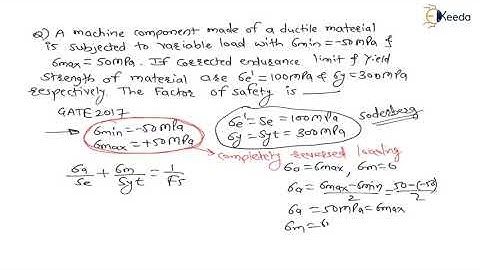 Ekeeda
Q) A machine component made of a ductile material
is subjected to variable load with σmin = -50MPa &
σmax = 50MPa. If corrected endurance limit & yield
strength of material are σe' = 100MPa & σy = 300MPa
respectively. The Factor of safety is ____
GATE 2017
σmin = -50MPa
σmax = +50MPa
σe' = Se = 100MPa
σy = Syt = 300MPa
Soderberg
completely reversed loading
σa/Se + σm/Syt = 1/Fs
σa = σmax, σm = 0
σa = σmax - σmin/2 = 50-(-50)/2
σa = 50MPa = σmax
σm = σ